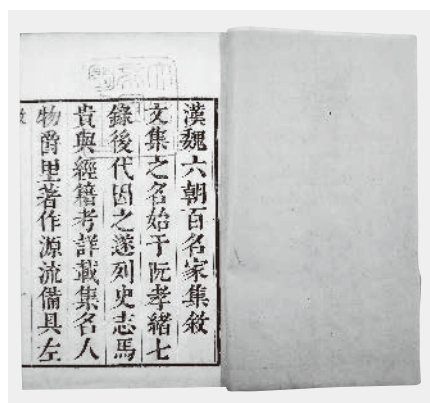 漢魏六朝百名家集敘
文集之名始于阮孝緒七
錄後代因之遂列史志馬
貴與經籍考詳載集名人
物爵里著作源流備具左